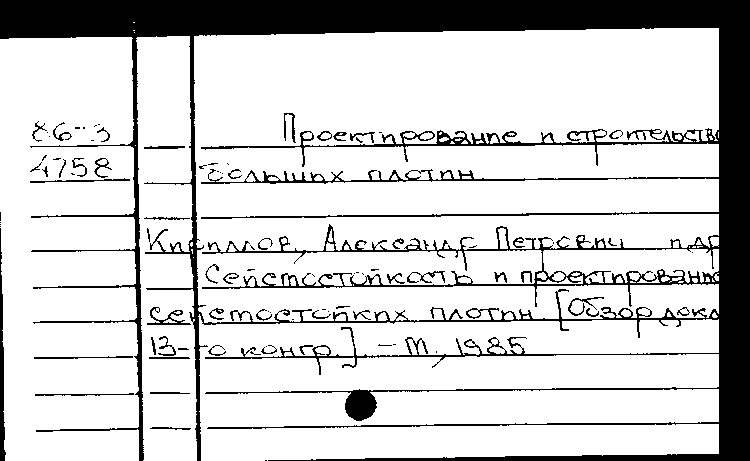 86-3 Проектирование и строительство
4758 больших плотин.
Кириллов, Александр Петрович и др
Сейсмостойкость и проектирование
сейсмостойких плотин. [Обзор докл
13-го конгр.] - М., 1985